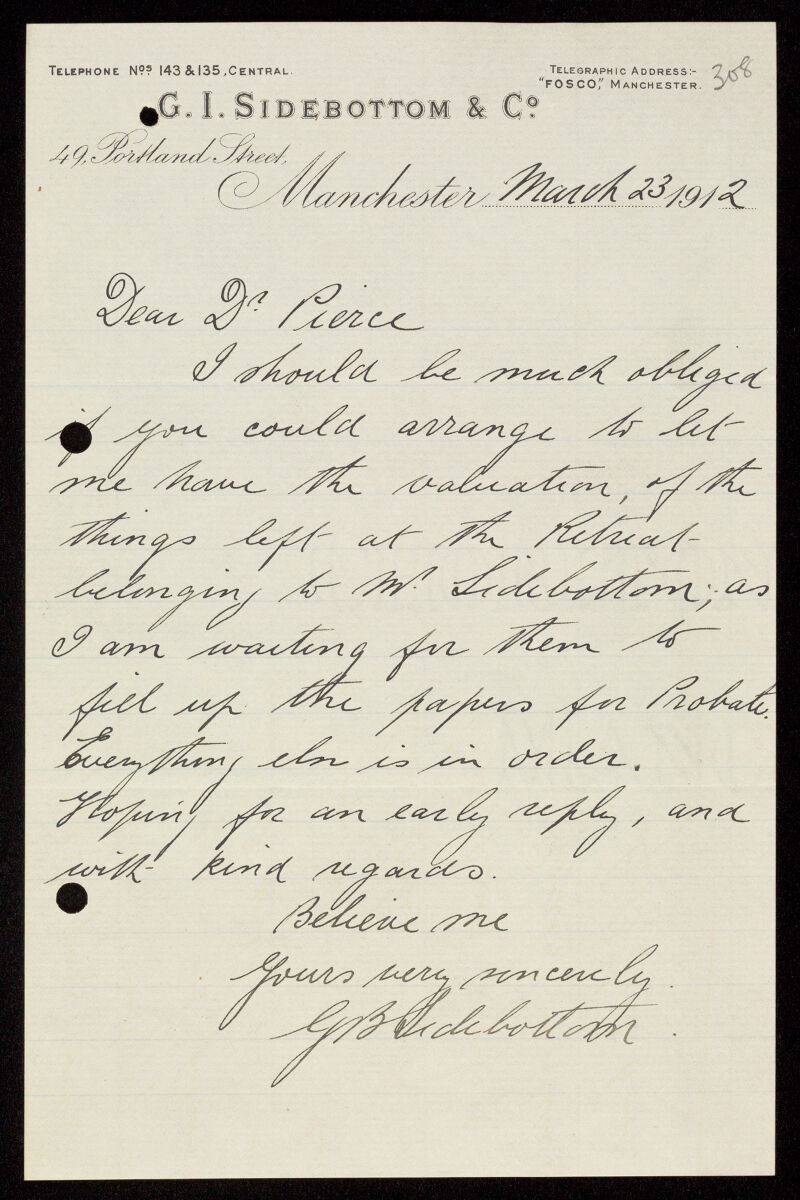 TELEPHONE Nos 143 & 135, CENTRAL.
TELEGRAPHIC ADDRESS:-
"FOSCO," MANCHESTER.
308
G. I. SIDEBOTTOM & Co.
49, Portland Street,
Manchester March 23 1912
Dear Dr Pierce
I should be much obliged
if you could arrange to let
me have the valuation, of the
things left at the Retreat
belonging to Mr Sidebottom; as
I am waiting for them to
fill up the papers for Probate.
Everything else is in order.
Hoping for an early reply, and
with kind regards.
Believe me
Yours very sincerely.
G B Sidebottom.